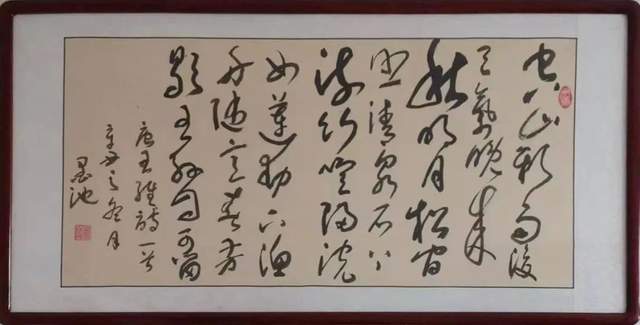 空山新雨後
天氣晚来
秋明月松间
照清泉石上
流竹喧歸浣
女蓮動下漁
舟随意春芳
歇王孫自可留
唐王維詩一首
辛丑之冬月
墨池